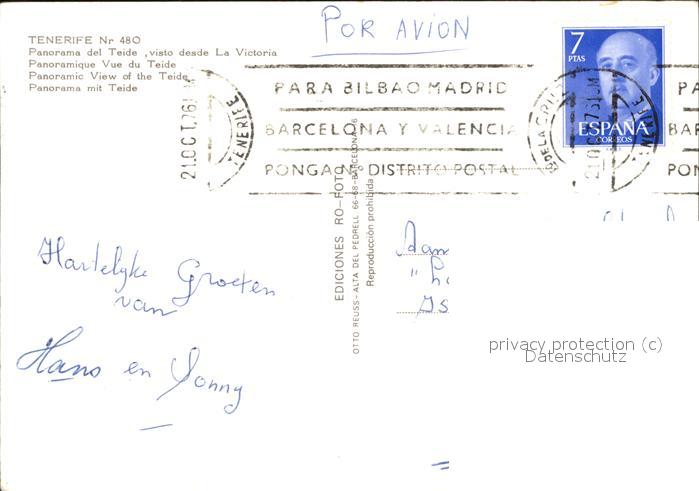 POR AVION
TENERIFE Nr 480
Panorama del Teide, visto desde La Victoria
Panoramique Vue du Teide
Panoramic View of the Teide
Panorama mit Teide
21.OCT.76
TENERIFE
PARA BILBAO MADRID
BARCELONA Y VALENCIA
PONGA Nº DISTRITO POSTAL
7
PTAS
ESPAÑA
CORREOS
DE LA CRUZ
21.OCT.76
TENERIFE
PA
BAR
PON
EDICIONES RO-FOTO
OTTO REUSS-ALTA DEL PEDRELL 66-68-BARCELONA-16
Reproducción prohibida
Hartelyke Groeten
van
Hans en Sonny
Aan
privacy protection (c)
Datenschutz